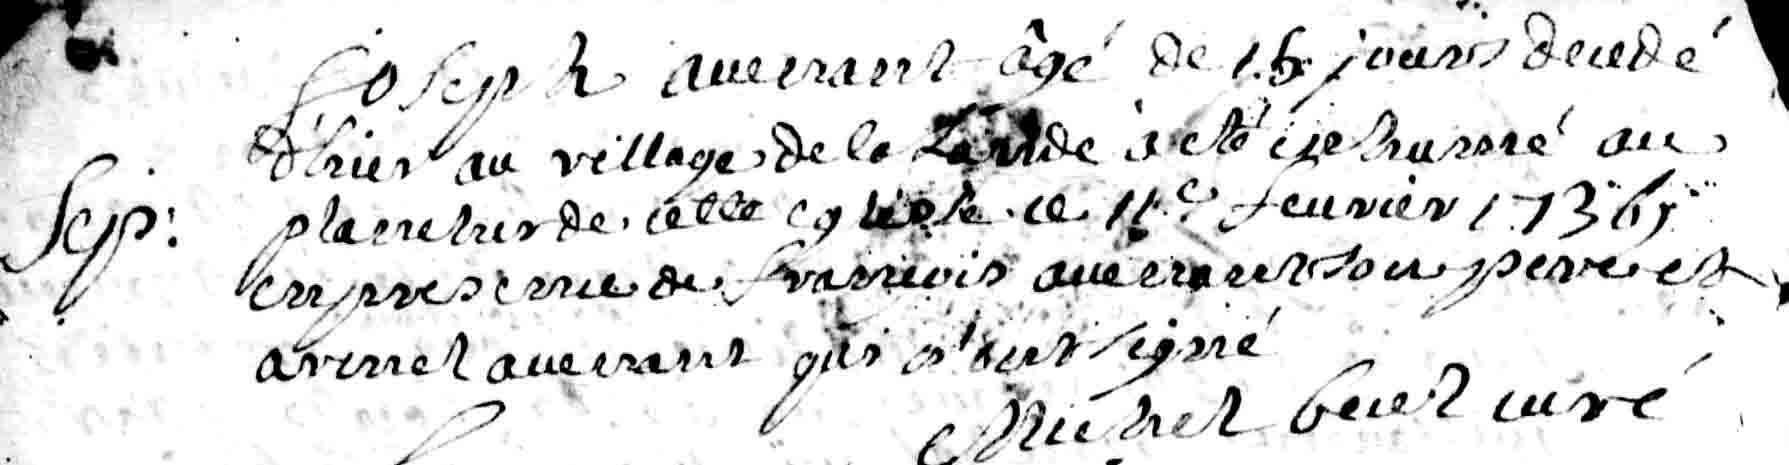 Joseph auenant âgé de 15 jours decedé
d'hier au village de la Lande a eté inhumé au
Sep: plancher de cette eglise ce 11e feurier 1736
en presence de francois auenant son pere et
auenant qui n'ont signé
Michel curé